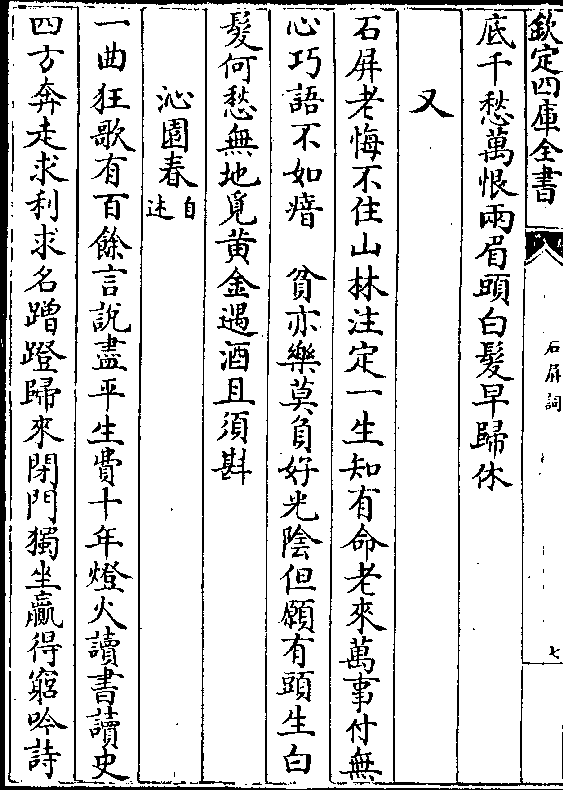 欽定四庫全書
石屏詞
七
底千愁萬恨兩眉頭白髮早歸休
又
石屏老悔不住山林注定一生知有命老來萬事付無
心巧語不如瘖　貧亦樂莫負好光陰但願有頭生白
髮何愁無地覓黄金遇酒且須斟
沁園春自述
一曲狂歌有百餘言說盡平生費十年燈火讀書讀史
四方奔走求利求名蹭蹬歸來閉門獨坐贏得窮吟詩